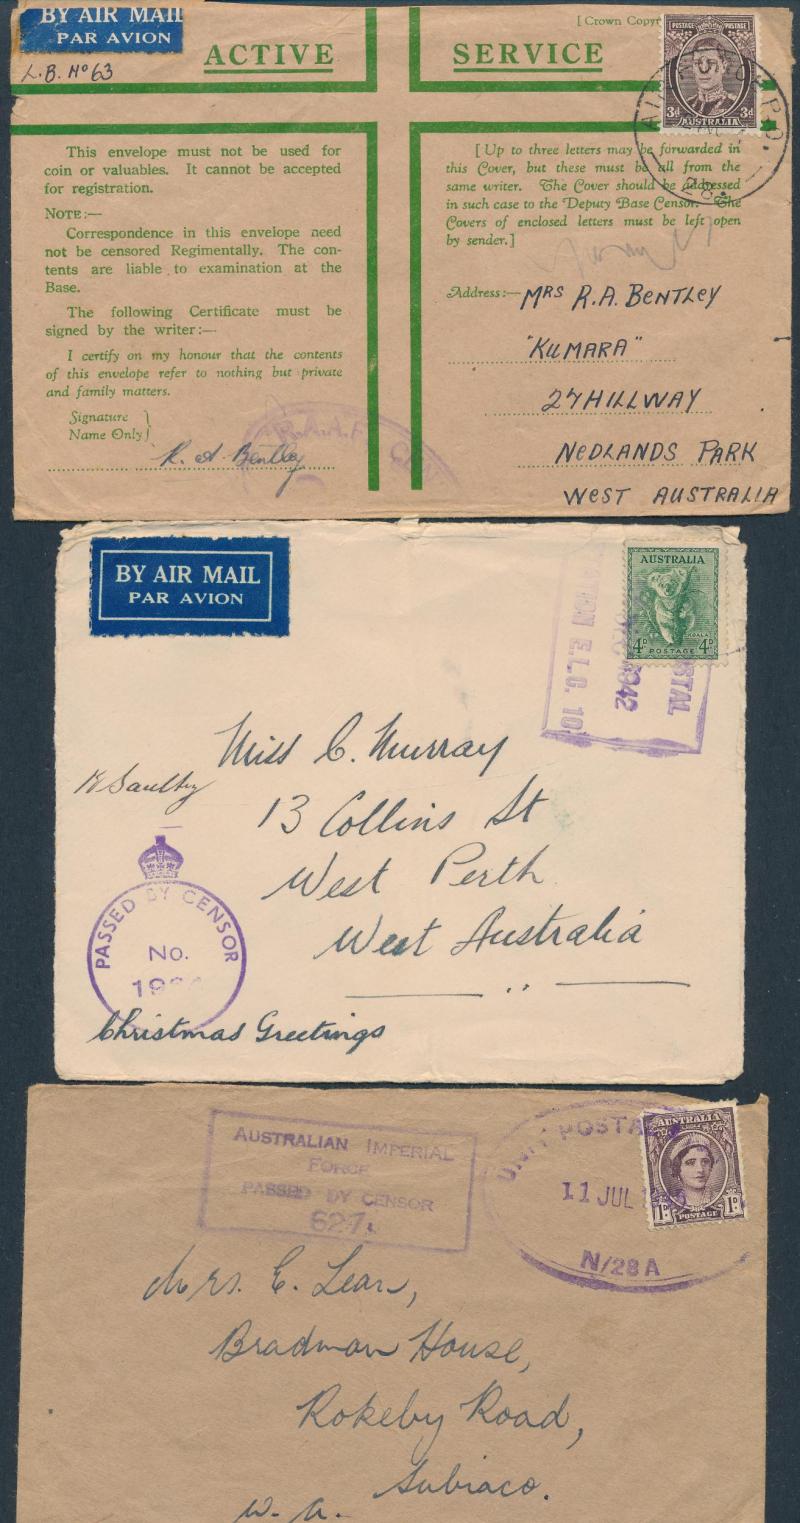 BY AIR MAIL
PAR AVION
L.B. Nº 63
ACTIVE SERVICE
[ Crown Copyr
POSTAGE POSTAGE
3d 3d
AUSTRALIA
5
28
This envelope must not be used for
coin or valuables. It cannot be accepted
for registration.
NOTE:—
Correspondence in this envelope need
not be censored Regimentally. The con-
tents are liable to examination at the
Base.
The following Certificate must be
signed by the writer:—
I certify on my honour that the contents
of this envelope refer to nothing but private
and family matters.
Signature
Name Only
R. A. Bentley
[ Up to three letters may be forwarded in
this Cover, but these must be all from the
same writer. The Cover should be addressed
in such case to the Deputy Base Censor. The
Covers of enclosed letters must be left open
by sender.]
Address:— MRS R.A. BENTLEY
"KUMARA"
27 HILLWAY
NEDLANDS PARK
WEST AUSTRALIA
BY AIR MAIL
PAR AVION
AUSTRALIA
KOALA
4D 4D
POSTAGE
STAL
1942
TION E.L.G. 10
Miss C. Murray
13 Collins St
West Perth
West Australia
PASSED BY CENSOR
No.
Christmas Greetings
AUSTRALIAN IMPERIAL
FORCE
PASSED BY CENSOR
627
UNIT POSTA
11 JUL
N/28A
AUSTRALIA
1D 1D
POSTAGE
Mrs. E. Lear,
Bradman House,
Rokeby Road,
Subiaco.
W. A.